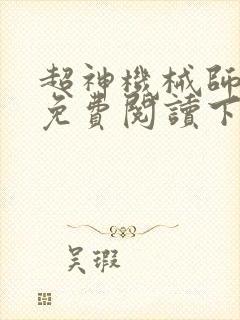 超神機械師
免費閱讀下
吴瑕